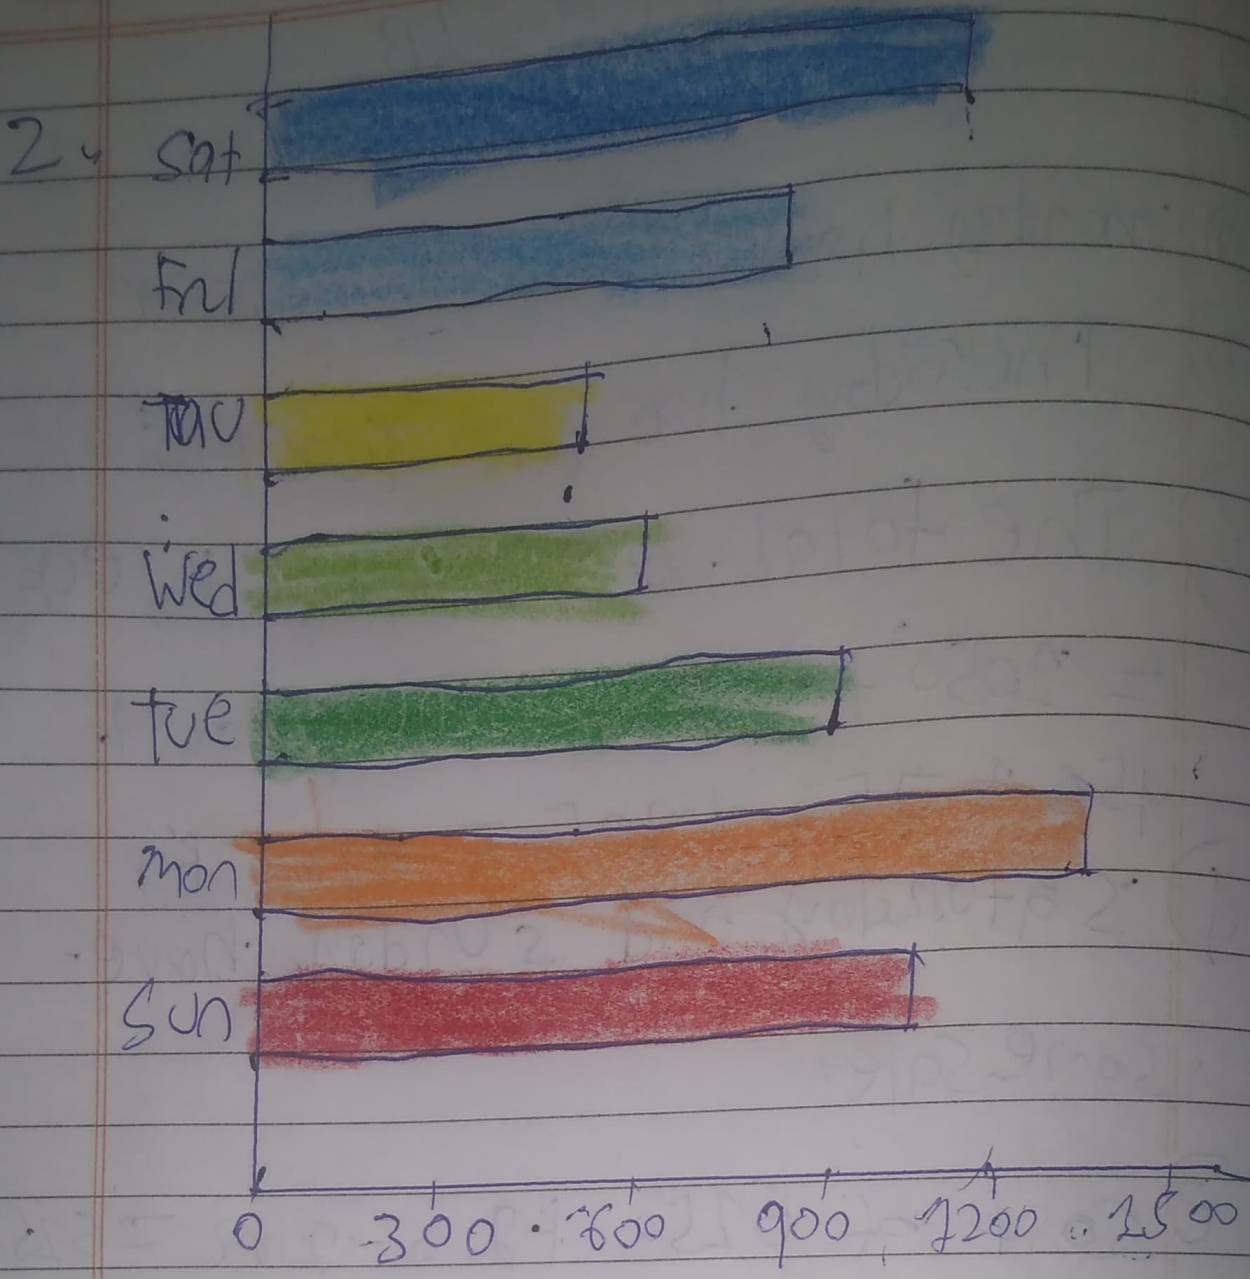 2. Sat
Fri
Tau
Wed
tue
mon
Sun
0 300 600 900 1200 1500